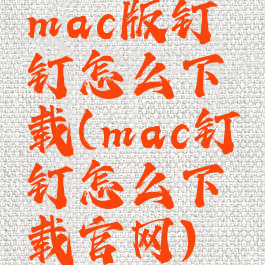 mac版钉
钉怎么下
载(mac钉
钉怎么下
载官网)